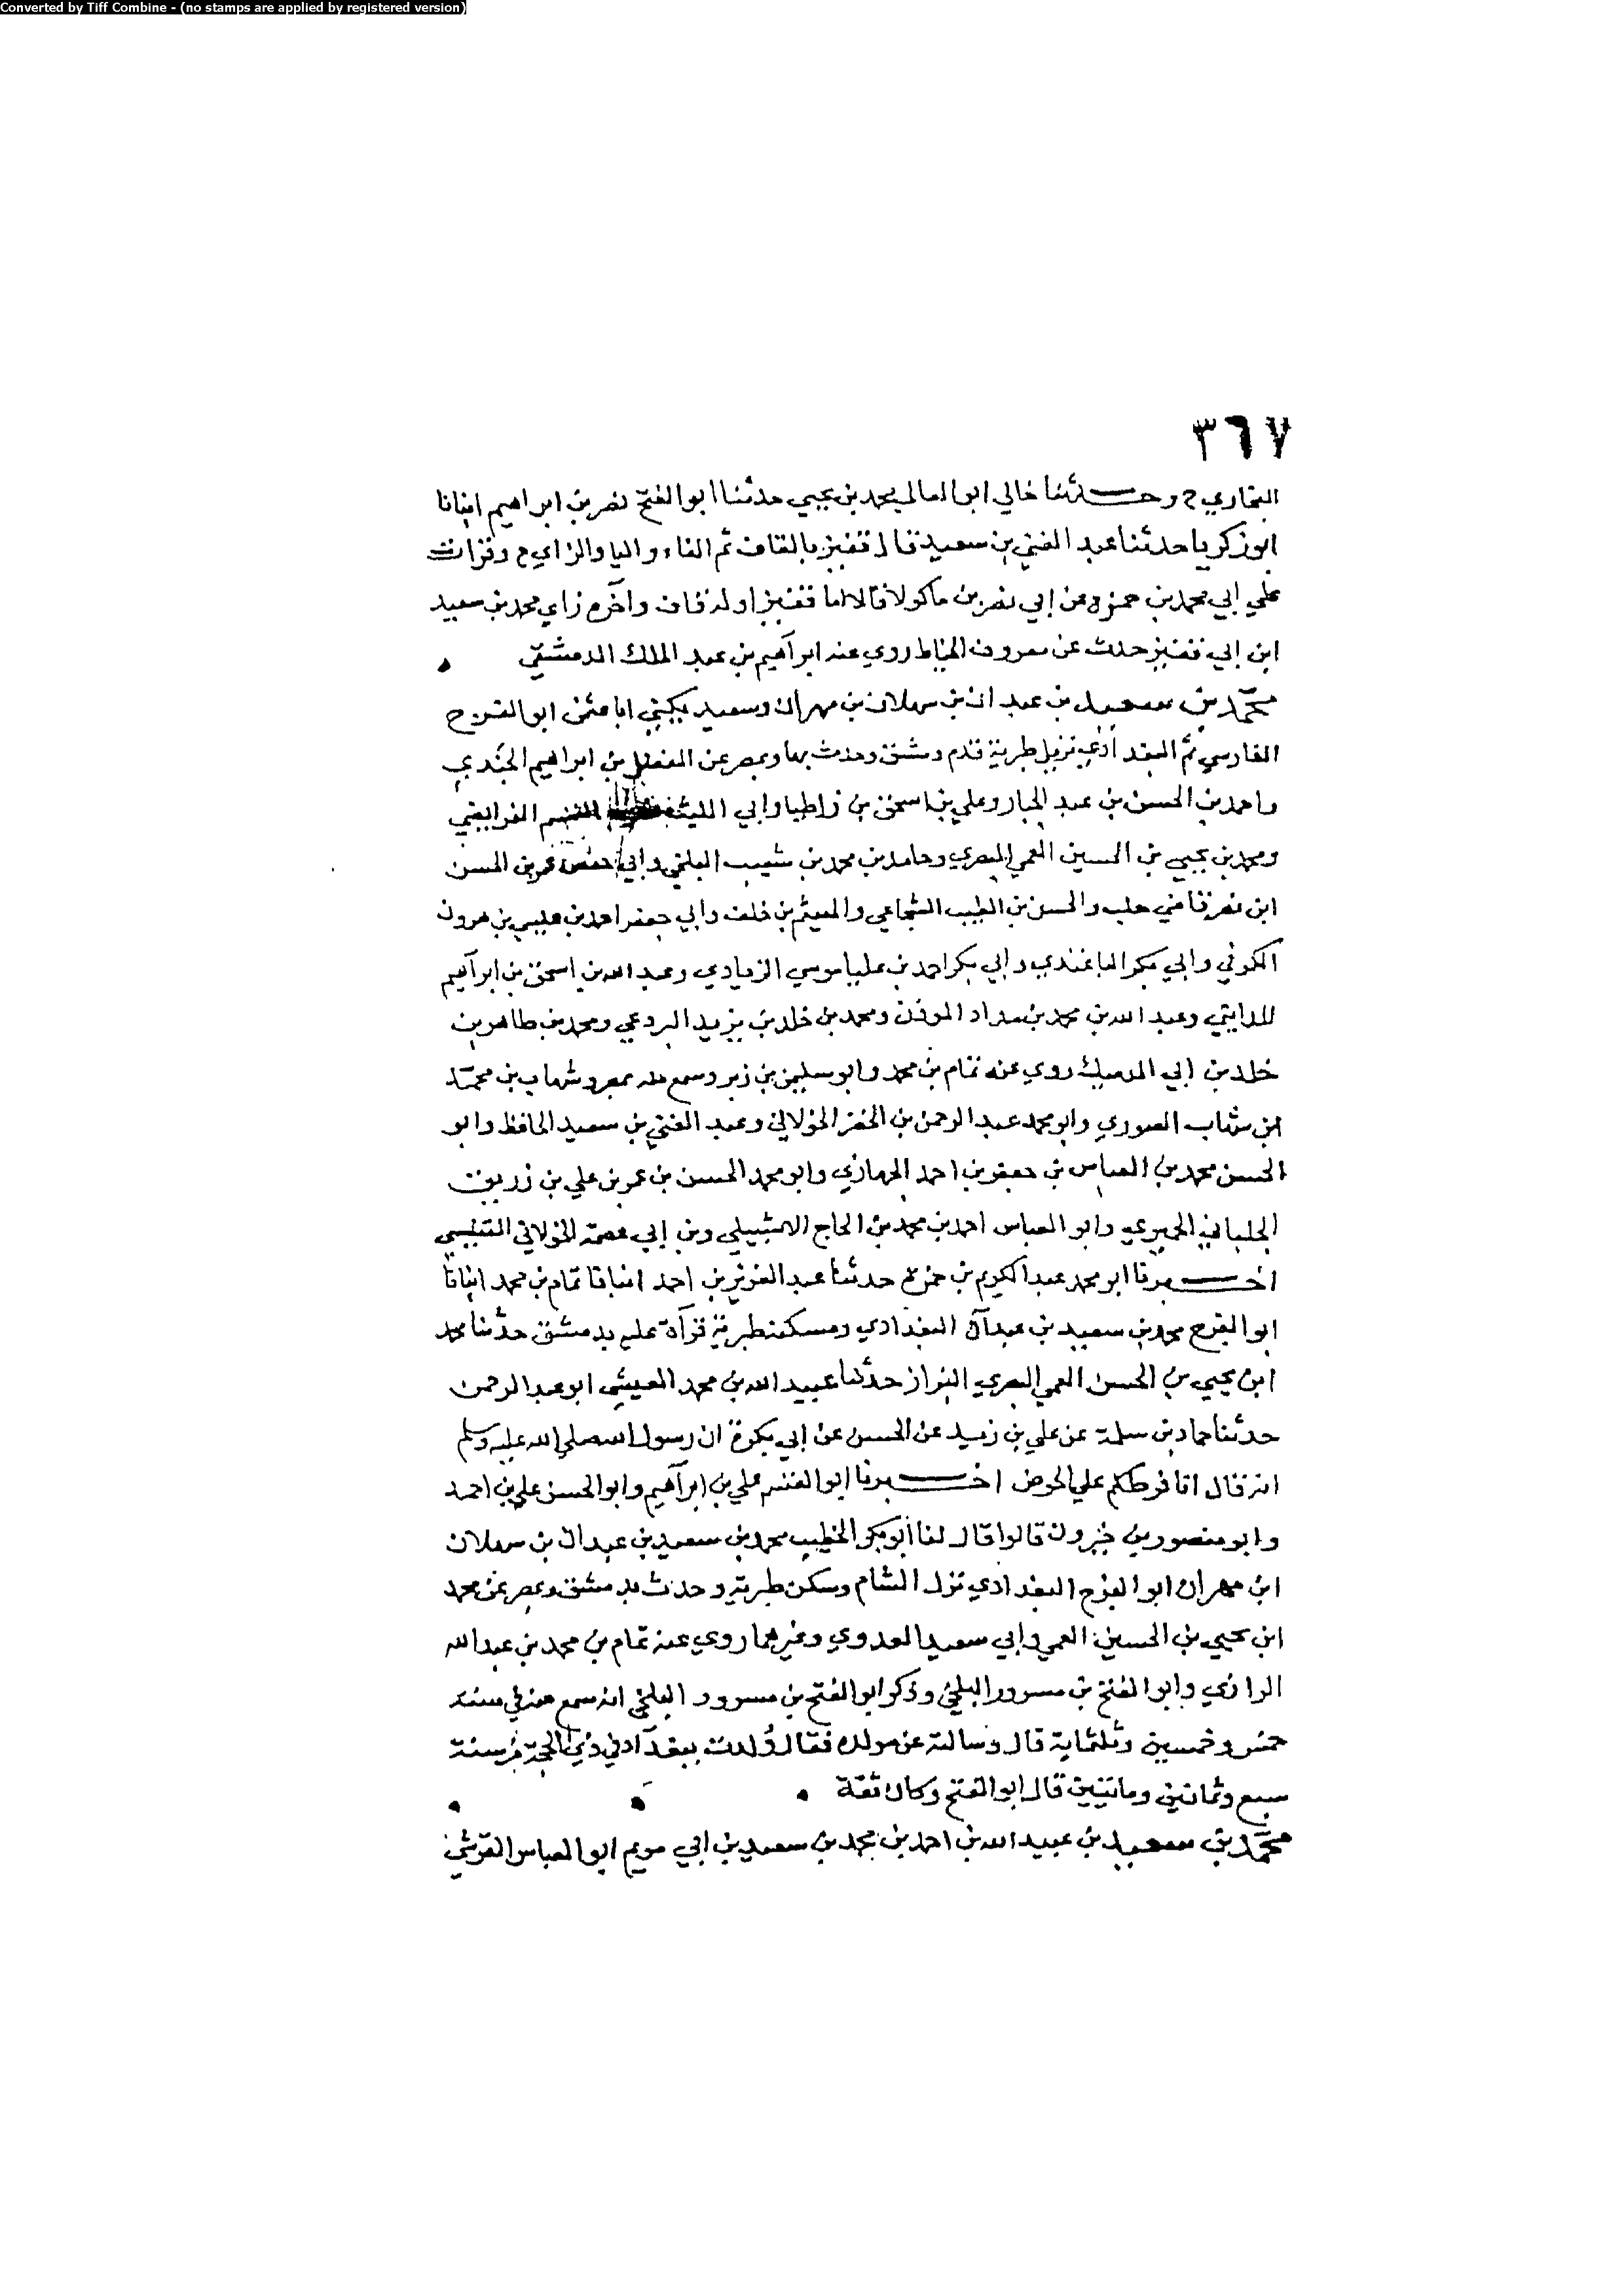 Converted by Tiff Combine - (no stamps are applied by registered version)
٣٦٧
البخاري ح وحدثنا خالي ابو المعالي محمد بن يحيي حدثنا ابو الفتح نصر بن ابراهيم انبانا
ابو زكريا حدثنا عبد الغني بن سعيد قال قفيز بالقاف ثم الفاء واليا والزاي ح وقرات
علي ابي محمد بن حمزه عن ابي نصر بن ماكولا قال اما قفيز اوله قاف وآخره زاي محمد بن سعيد
ابن ابي قفيز حدث عن معروف الخياط روي عنه ابرآهيم بن عبد الملك الدمشقي
محمّد بن سعيد بن عبدان بن سهلان بن مهران وسعيد يكني ابا عثمن ابو الفرج
الفارسي ثمّ البغدادي نزيل طبرية قدم دمشق وحدث بها وبمصر عن المفضل بن ابراهيم الجَندي
واحمد بن الحسن بن عبد الجبار وعلي بن اسحق بن زاطيا وابي الليث القسم الفرايضي
ومحمد بن يحيي بن الحسين العمي البصري وحامد بن محمد بن شعيب البلخي وابي حفص عمر بن الحسن
ابن نصر قاضي حلب والحسن بن الطيب الشجاعي والهيثم بن خلف وابي جعفر احمد بن عيسي بن هرون
الكوفي وابي بكر الباغندي وابي بكر احمد بن موسي الزيادي وعبد الله بن اسحق بن ابرآهيم
المدايني وعبد الله بن محمد بن الموذن ومحمد بن خلد بن يزيد البردعي ومحمد بن طاهر بن
خلد بن ابي الدميك روي عنه تمام بن محمد وابو سليمن بن زبر وسمع منه بمصر وشهاب بن محمّد
ابن شهاب الصوري وابو محمد عبد الرحمن بن الخضر الخولاني وعبد الغني بن سعيد الحافظ وابو
الحسن محمد بن العباس بن جعفر بن احمد وابو محمد الحسن بن عمر بن علي بن زريق
الحميري وابو العباس احمد بن محمد بن الحاج الاشبيلي وبن ابي عصمة الخولاني التنيسي
اخبرنا ابو محمد عبد الكريم بن حمزة حدثنا عبد العزيز بن احمد انبانا تمام بن محمد انبانا
ابو الفرج محمد بن سعيد بن عبدآن البغدادي ومسكنه طبرية قرآة عليه بدمشق حدثنا محمد
ابن يحيي بن الحسن العمي البصري البزاز حدثنا عبيد الله بن محمد العيشي ابو عبد الرحمن
حدثنا حماد بن سلمة عن علي بن زيد عن الحسن عن ابي بكرة ان رسول الله صلي الله عليه وسلم
انه قال انا فرطكم علي الحوض اخبرنا ابو القسم علي بن ابرآهيم وابو الحسن علي بن احمد
وابو منصور بن خيرون قالوا قال لنا ابو بكر الخطيب محمد بن سعيد بن عبدان بن سهلان
ابن مهران ابو الفرج البغدادي نزل الشام وسكن طبرية وحدث بدمشق وبمصر عن محمد
ابن يحيي بن الحسين العمي وابي سعيد العدوي وغيرهما روي عنه تمام بن محمد بن عبد الله
الرازي وابو الفتح بن مسرور البلخي وذكر ابو الفتح بن مسرور البلخي انه سمع منه في سنة
خمس وخمسين وثلثماية قال وسالته عن مولده فقال وُلدت ببغدآد في ذي الحجة من سنة
سبع وثمانين وماتيين قال ابو الفتح وكان ثقة
محمّد بن سعيد بن عبيد الله بن احمد بن محمد بن سعيد بن ابي مريم ابو العباس القرشي